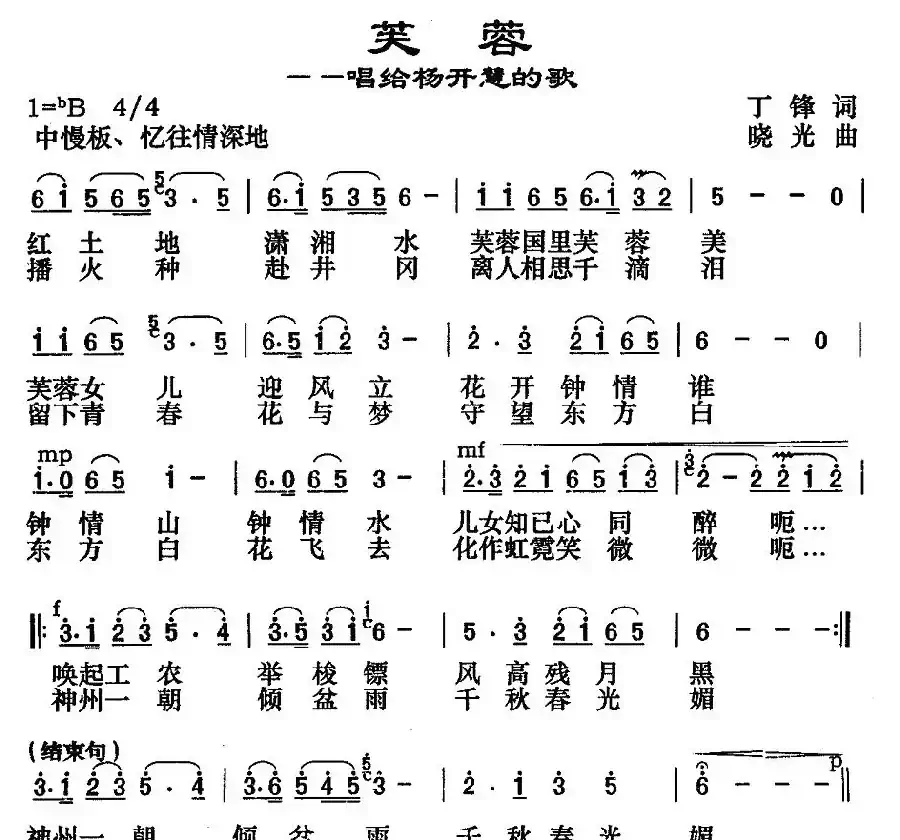 芙 蓉
——唱给杨开慧的歌
1=ᵇB 4/4
丁 锋 词
中慢板、忆往情深地
晓 光 曲
6 i 5 6 5 3 · 5 | 6 · i 5 3 5 6 － | i i 6 5 6 · i 3 2 | 5 － － 0 |
红 土 地 潇 湘 水 芙蓉国里芙 蓉 美
播 火 种 赴 井 冈 离人相思千 滴 泪
i i 6 5 3 · 5 | 6 · 5 i 2 3 － | 2 · 3 2 i 6 5 | 6 － － 0 |
芙蓉女 儿 迎 风 立 花 开 钟 情 谁
留下青 春 花 与 梦 守 望 东 方 白
mp mf
i · 0 6 5 i － | 6 · 0 6 5 3 － | 2 · 3 2 i 6 5 i 3 | 2 － 2 2 i 2 |
钟 情 山 钟 情 水 儿女知己心 同 醉 呃…
东 方 白 花 飞 去 化作虹霓笑 微 微 呃…
f
‖: 3 · i 2 3 5 · 4 | 3 · 5 3 i 6 － | 5 · 3 2 i 6 5 | 6 － － － :‖
唤起工 农 举 梭 镖 风 高 残 月 黑
神州一 朝 倾 盆 雨 千 秋 春 光 媚
(结束句) p
3 · i 2 3 5 · 4 | 3 · 6 5 4 5 3 － | 2 · i 3 5 | 6 － － － ‖
神州一 朝 倾 盆 雨 千 秋 春 光 媚